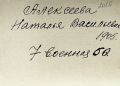 Алексеева
Наталья Васильевна
1906.
7 военная ба